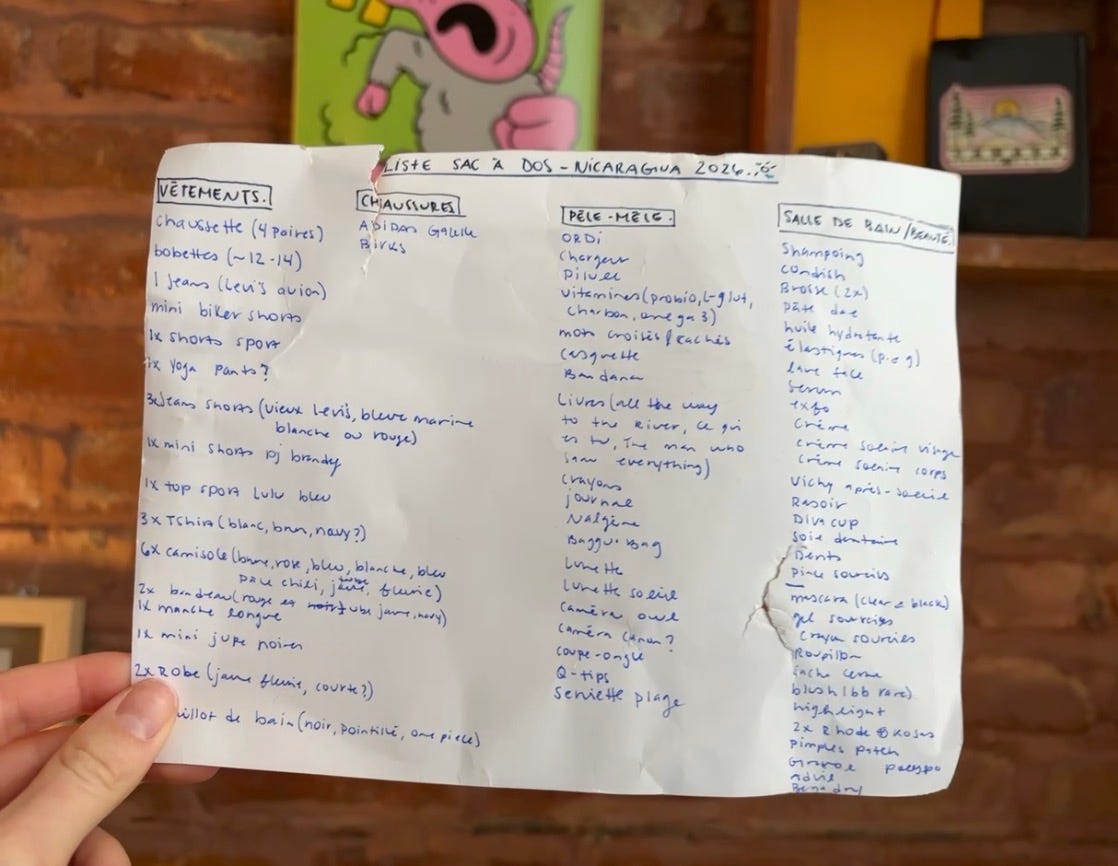 LISTE SAC À DOS - NICARAGUA 2026
VÊTEMENTS.
chaussette (4 paires)
bobettes (~12-14)
1 jeans (Levi's avion)
mini biker shorts
1x shorts sport
1x Yoga pants?
3x Jeans shorts (vieux Levi's, bleue marine
blanche ou rouge)
1x mini shorts pj brandy
1x top sport Lulu bleu
3x Tshirt (blanc, brun, navy?)
6x camisole (brune, rose, bleu, blanche, bleu
pale chili, jaune, fleurie)
2x bandeau (rouge et jaune, navy)
1x manche longue
1x mini jupe noire
2x Robe (jaune fleurie, courte?)
illot de bain (noir, pointillé, one piece)
CHAUSSURES
Adidas Gazelle
Birks
PÊLE-MÊLE.
ORDI
Chargeur
Pilule
vitamines (probio, L-glut,
charbon, omega 3)
mots croisés / cachés
casquette
Bandana
Livres (all the way
to the River, ce qui
es tu, The man who
saw everything)
crayons
journal
Nalgène
Baggu Bag
Lunette
Lunette soleil
caméra owl
caméra canon?
coupe-ongle
Q-tips
Serviette plage
SALLE DE BAIN / BEAUTÉ.
Shampoing
condish
Brosse (2x)
pâte
huile hydratante
élastiques (p. & g)
lave face
serum
exfo
crème
crème soleil visage
crème soleil corps
Vichy après-soleil
Rasoir
Diva cup
soie dentaire
Dents
pince sourcils
mascara (clear & black)
gel sourcils
crayon sourcils
Roupillon
cache cerne
blush (bb rare)
highlight
2x Rhode & Rosas
pimples patch
Gravol
Advil
Benadryl